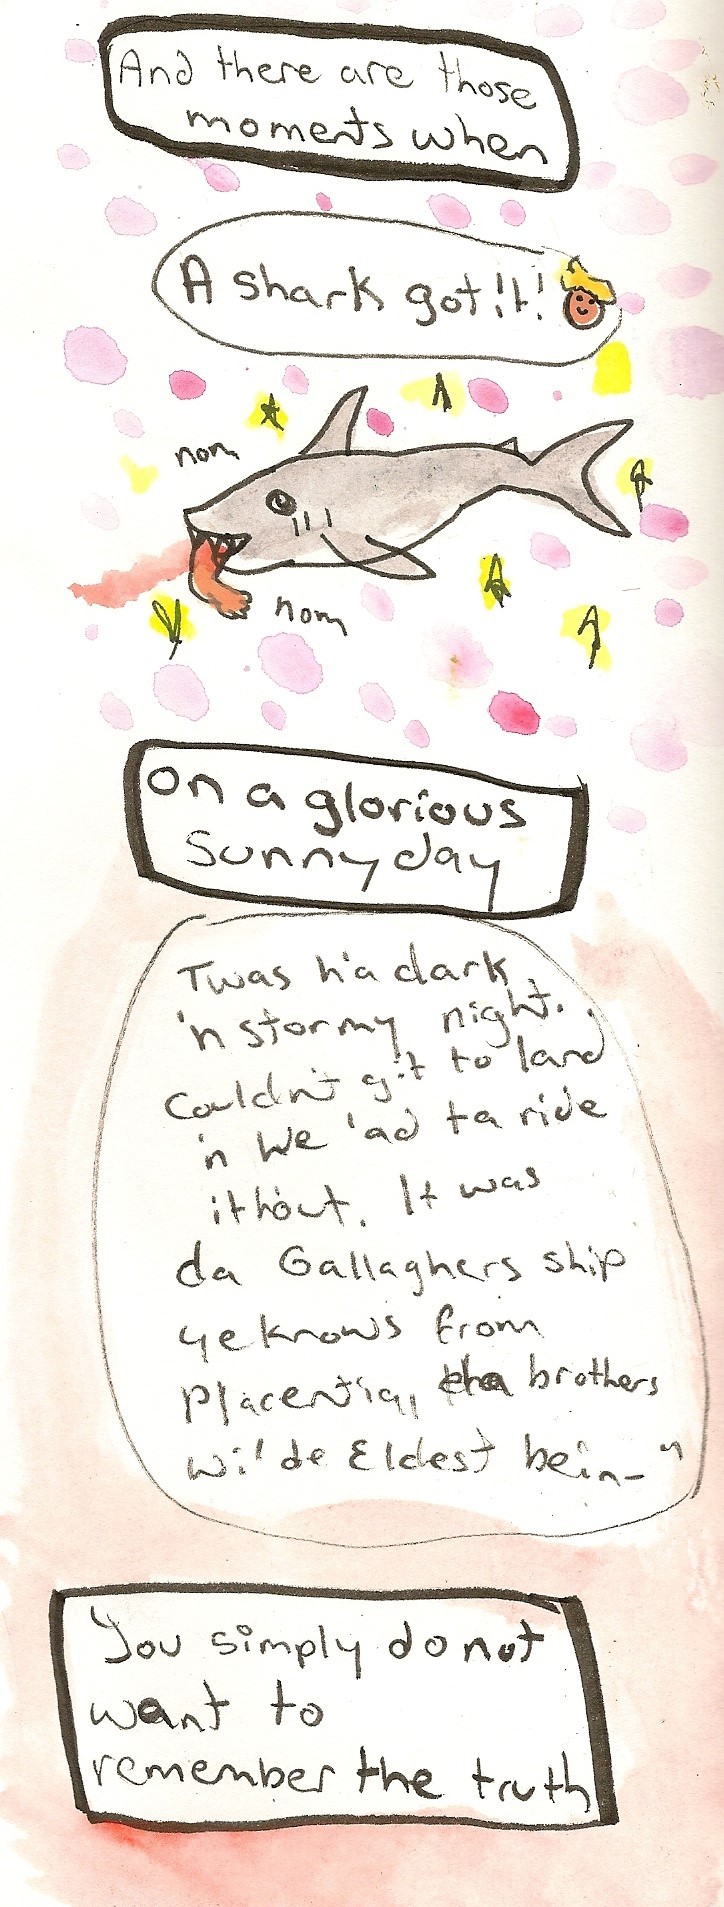 And there are those
moments when
A shark got it!
nom
nom
on a glorious
sunny day
Twas h'a dark
'n stormy night.
Couldn't git to land
'n we 'ad ta ride
ithout. It was
da Gallaghers ship
ye knows from
Placentia, tha brothers
wi' de Eldest bein—"
You simply do not
want to
remember the truth